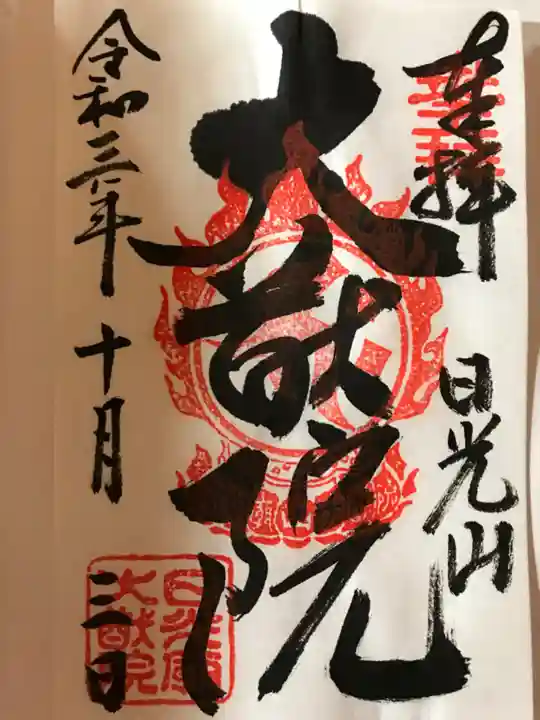 奉拝
日光山
大猷院
令和三年
十月
二日
日光廟
大猷院